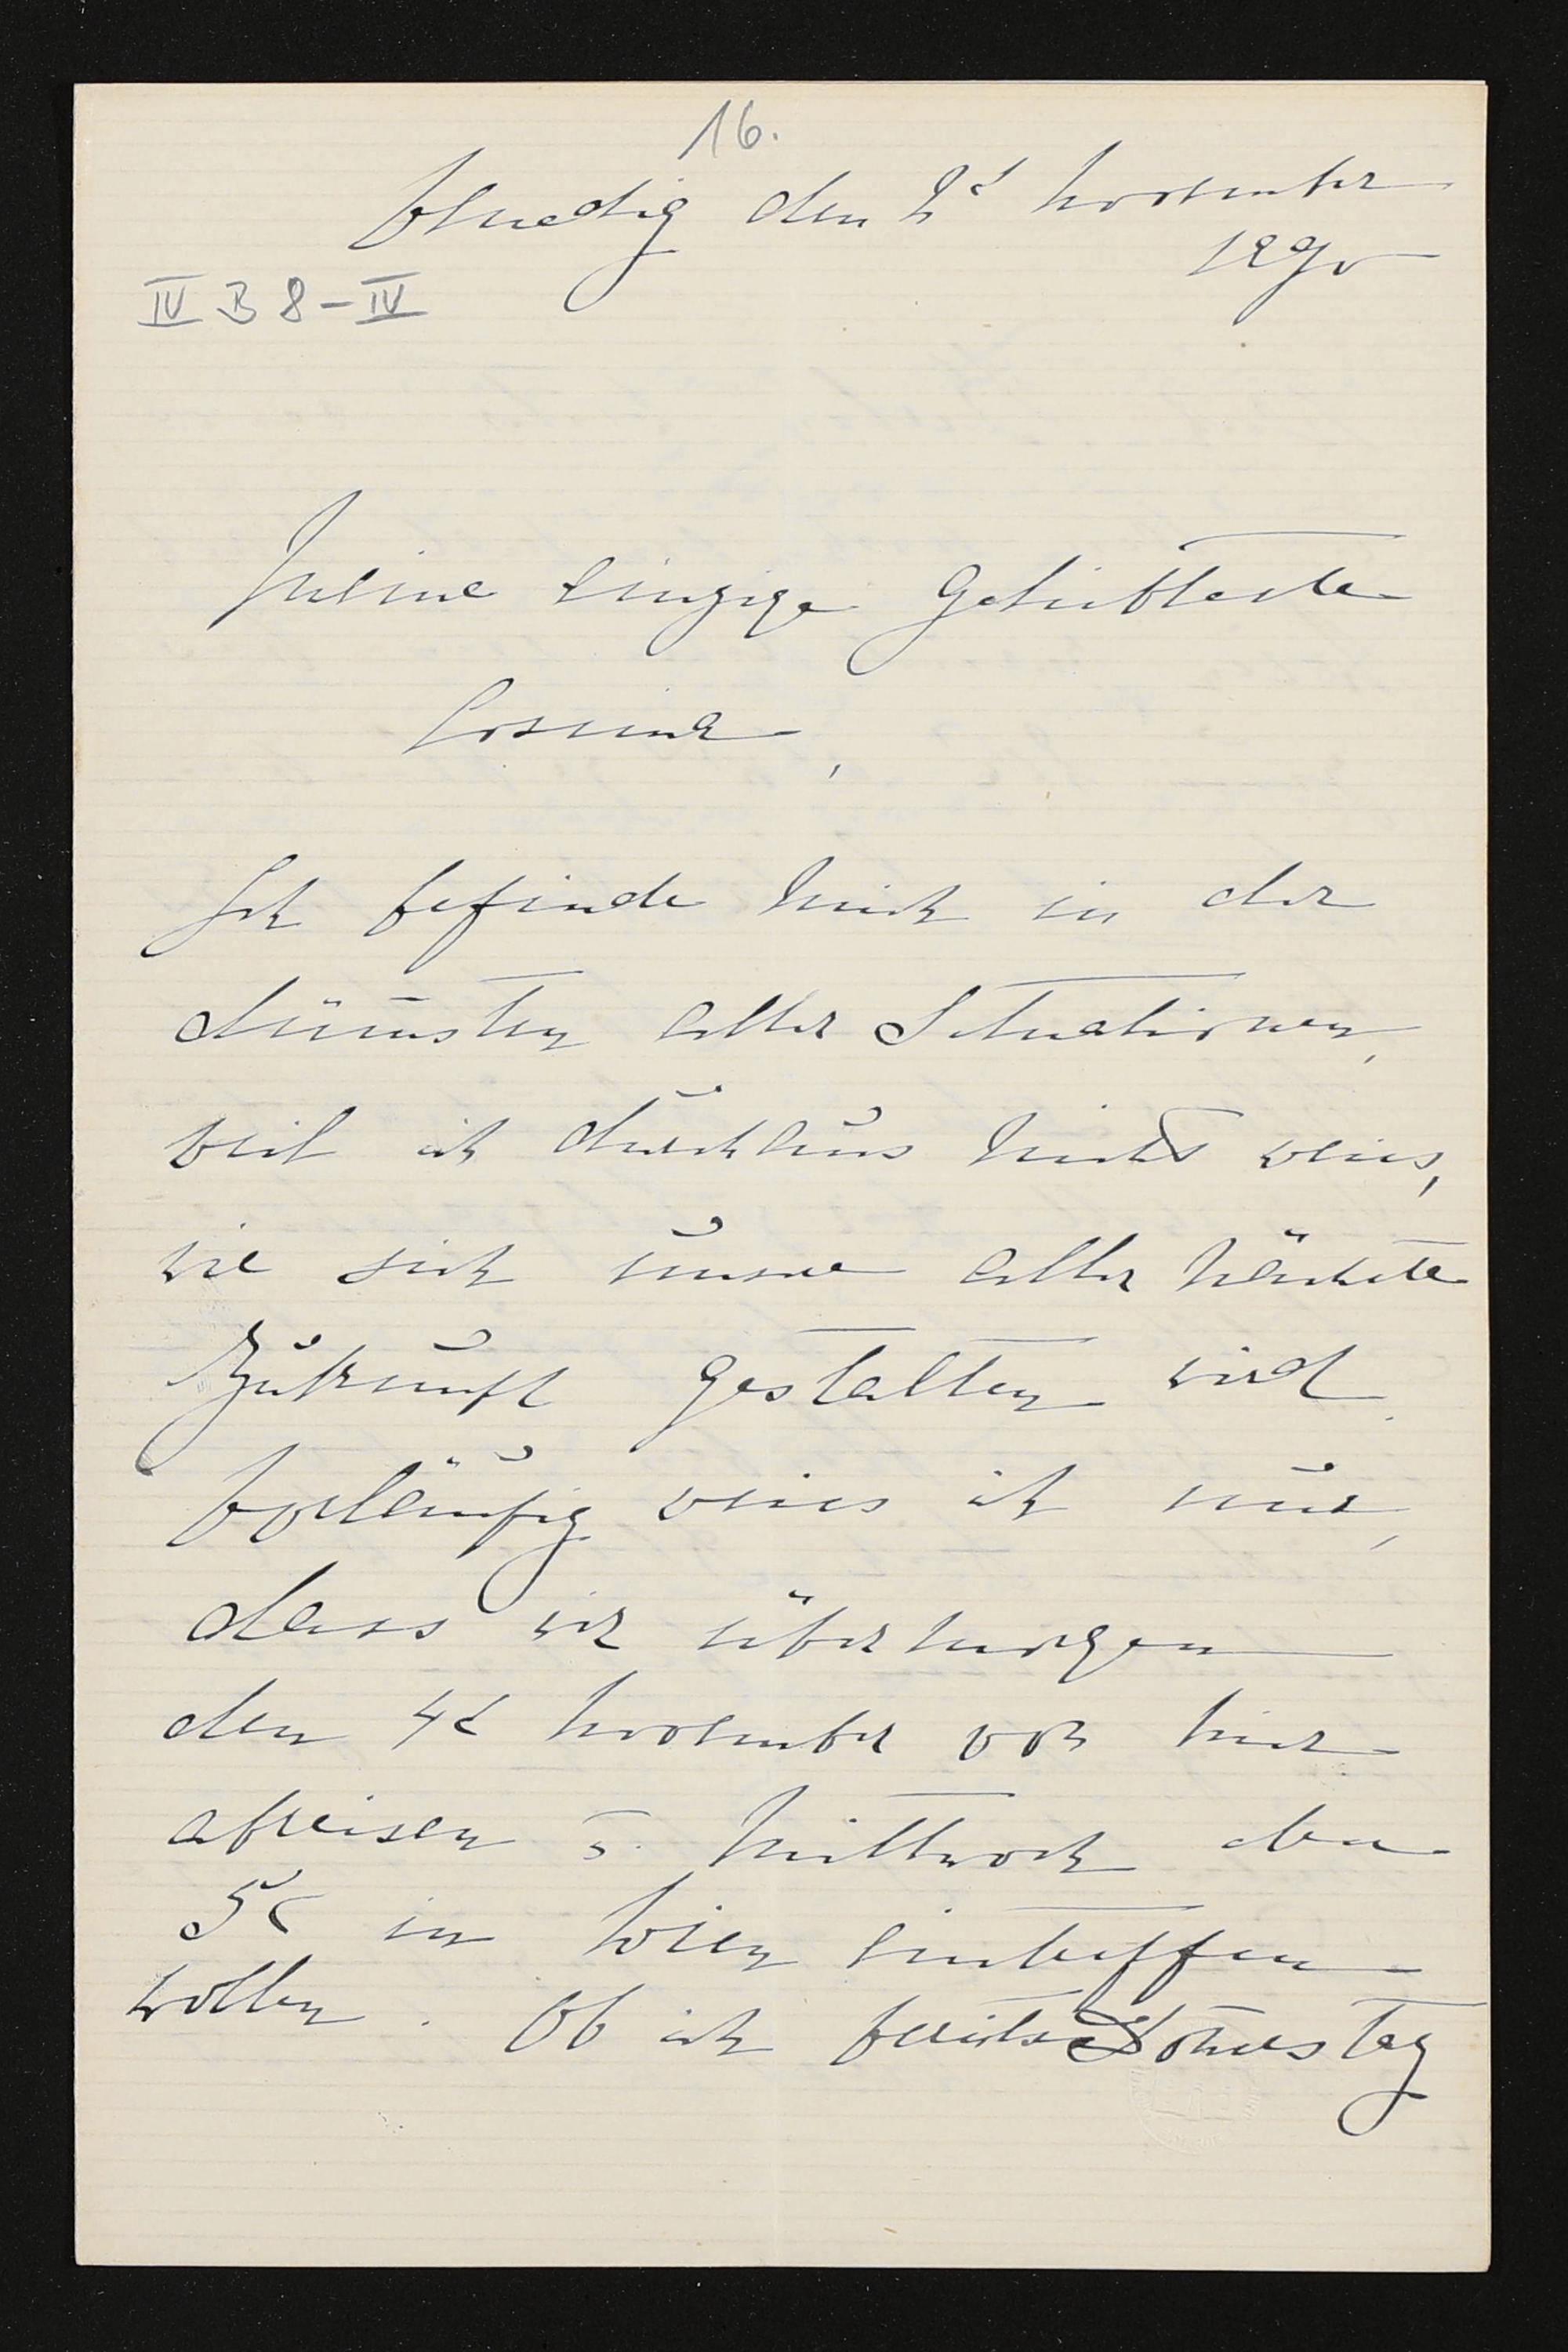 16.
Venedig den 2t November
1890
IV B 8-IV
Meine einzige Geliebteste
Cosima,
Ich befinde mich in der
dümsten aller Situationen,
weil ich durchaus nicht weis,
wie sich unsre aller nächste
Zukunft gestalten wird.
Vorläufig weis ich nur,
dass wir übermorgen
den 4t November von hier
abreisen u. Mittwoch den
5t in Wien eintreffen
wollen. Ob ich bereits Donerstag